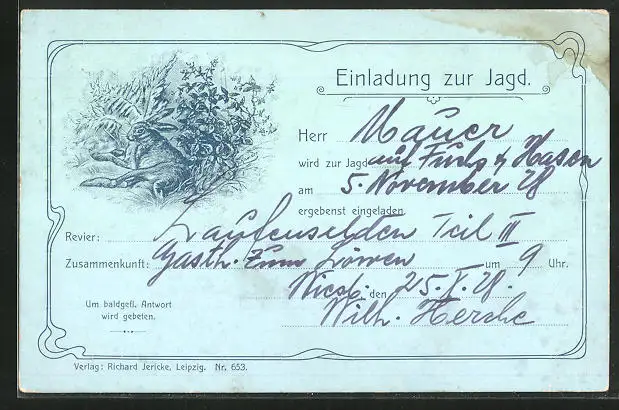 Einladung zur Jagd.
Herr Mauer
wird zur Jagd auf Fuchs & Hasen
am 5. November 28
ergebenst eingeladen.
Revier: Laufenselden Teil III
Zusammenkunft: Gasth. zum Löwen um 9 Uhr.
Wiesb. den 25.X.28.
Um baldgefl. Antwort
wird gebeten.
Wilh.
Verlag: Richard Jericke, Leipzig. Nr. 653.